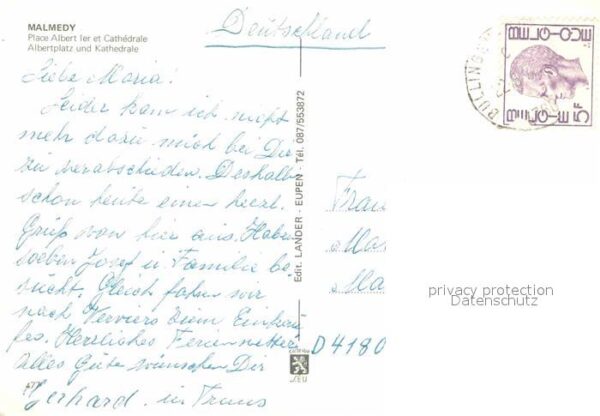 MALMEDY
Place Albert Ier et Cathédrale
Albertplatz und Kathedrale
Deutschland
BELGIQUE
BELGIE 5F
Liebe Maria!
Leider kam ich nicht
mehr dazu mich bei Dir
zu verabschieden. Deshalb
schon heute einen herzl.
Gruß von hier aus. Haben
soeben Josef u. Familie be
sucht. Gleich fahren wir
nach Verviers zum Einkau
fen. Herzliches Ferienwetter
Alles Gute wünschen Dir
Gerhard
Edit. LANDER - EUPEN - Tél. 087/553872
Frau
Mar
Ma
D 4180
privacy protection
Datenschutz